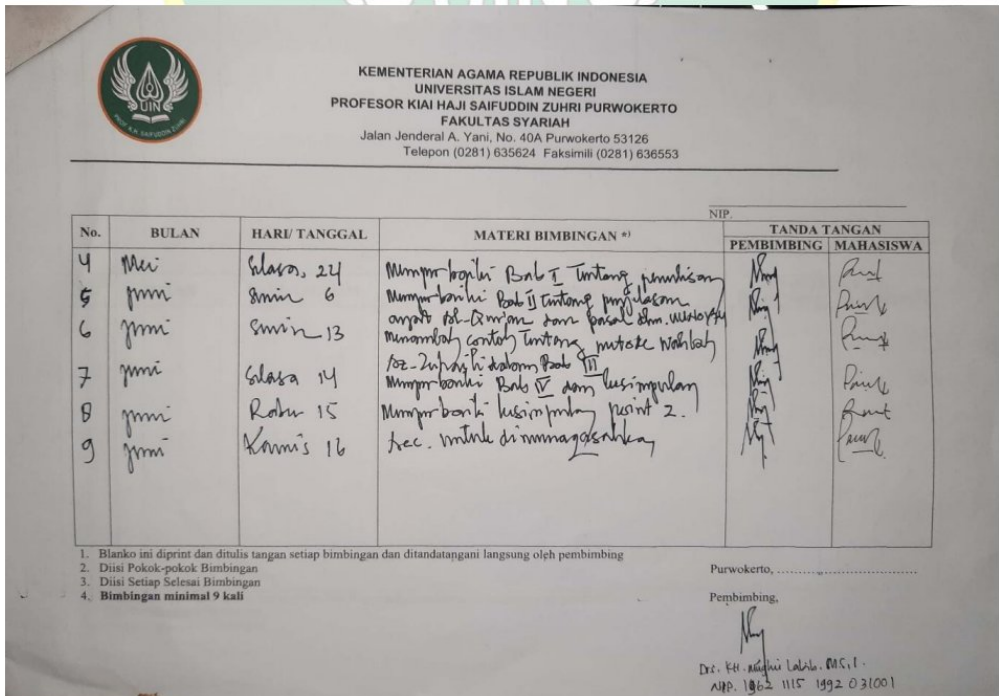 UIN
PROF. K.H. SAIFUDDIN ZUHRI
KEMENTERIAN AGAMA REPUBLIK INDONESIA
UNIVERSITAS ISLAM NEGERI
PROFESOR KIAI HAJI SAIFUDDIN ZUHRI PURWOKERTO
FAKULTAS SYARIAH
Jalan Jenderal A. Yani, No. 40A Purwokerto 53126
Telepon (0281) 635624 Faksimili (0281) 636553
NIP.
No. BULAN HARI/ TANGGAL MATERI BIMBINGAN *) TANDA TANGAN
PEMBIMBING MAHASISWA
4 Mei Selasa, 24 Memperbaiki Bab I tentang penulisan
5 Juni Senin 6 Memperbaiki Bab II tentang penjelasan
ayat Al-Qur'an dan pasal
6 Juni Senin 13 menambah contoh tentang metode Wahbah
Az-Zuhaili dalam Bab III
7 Juni Selasa 14 Memperbaiki Bab IV dan kesimpulan
8 Juni Rabu 15 Memperbaiki kesimpulan point 2.
9 Juni Kamis 16 Acc. untuk dimunaqasahkan
1. Blanko ini diprint dan ditulis tangan setiap bimbingan dan ditandatangani langsung oleh pembimbing
2. Diisi Pokok-pokok Bimbingan
3. Diisi Setiap Selesai Bimbingan
4. Bimbingan minimal 9 kali
Purwokerto, ....................................
Pembimbing,
Drs. KH. Mughni Labib. M.S.I.
NIP. 1962 1115 1992 031001